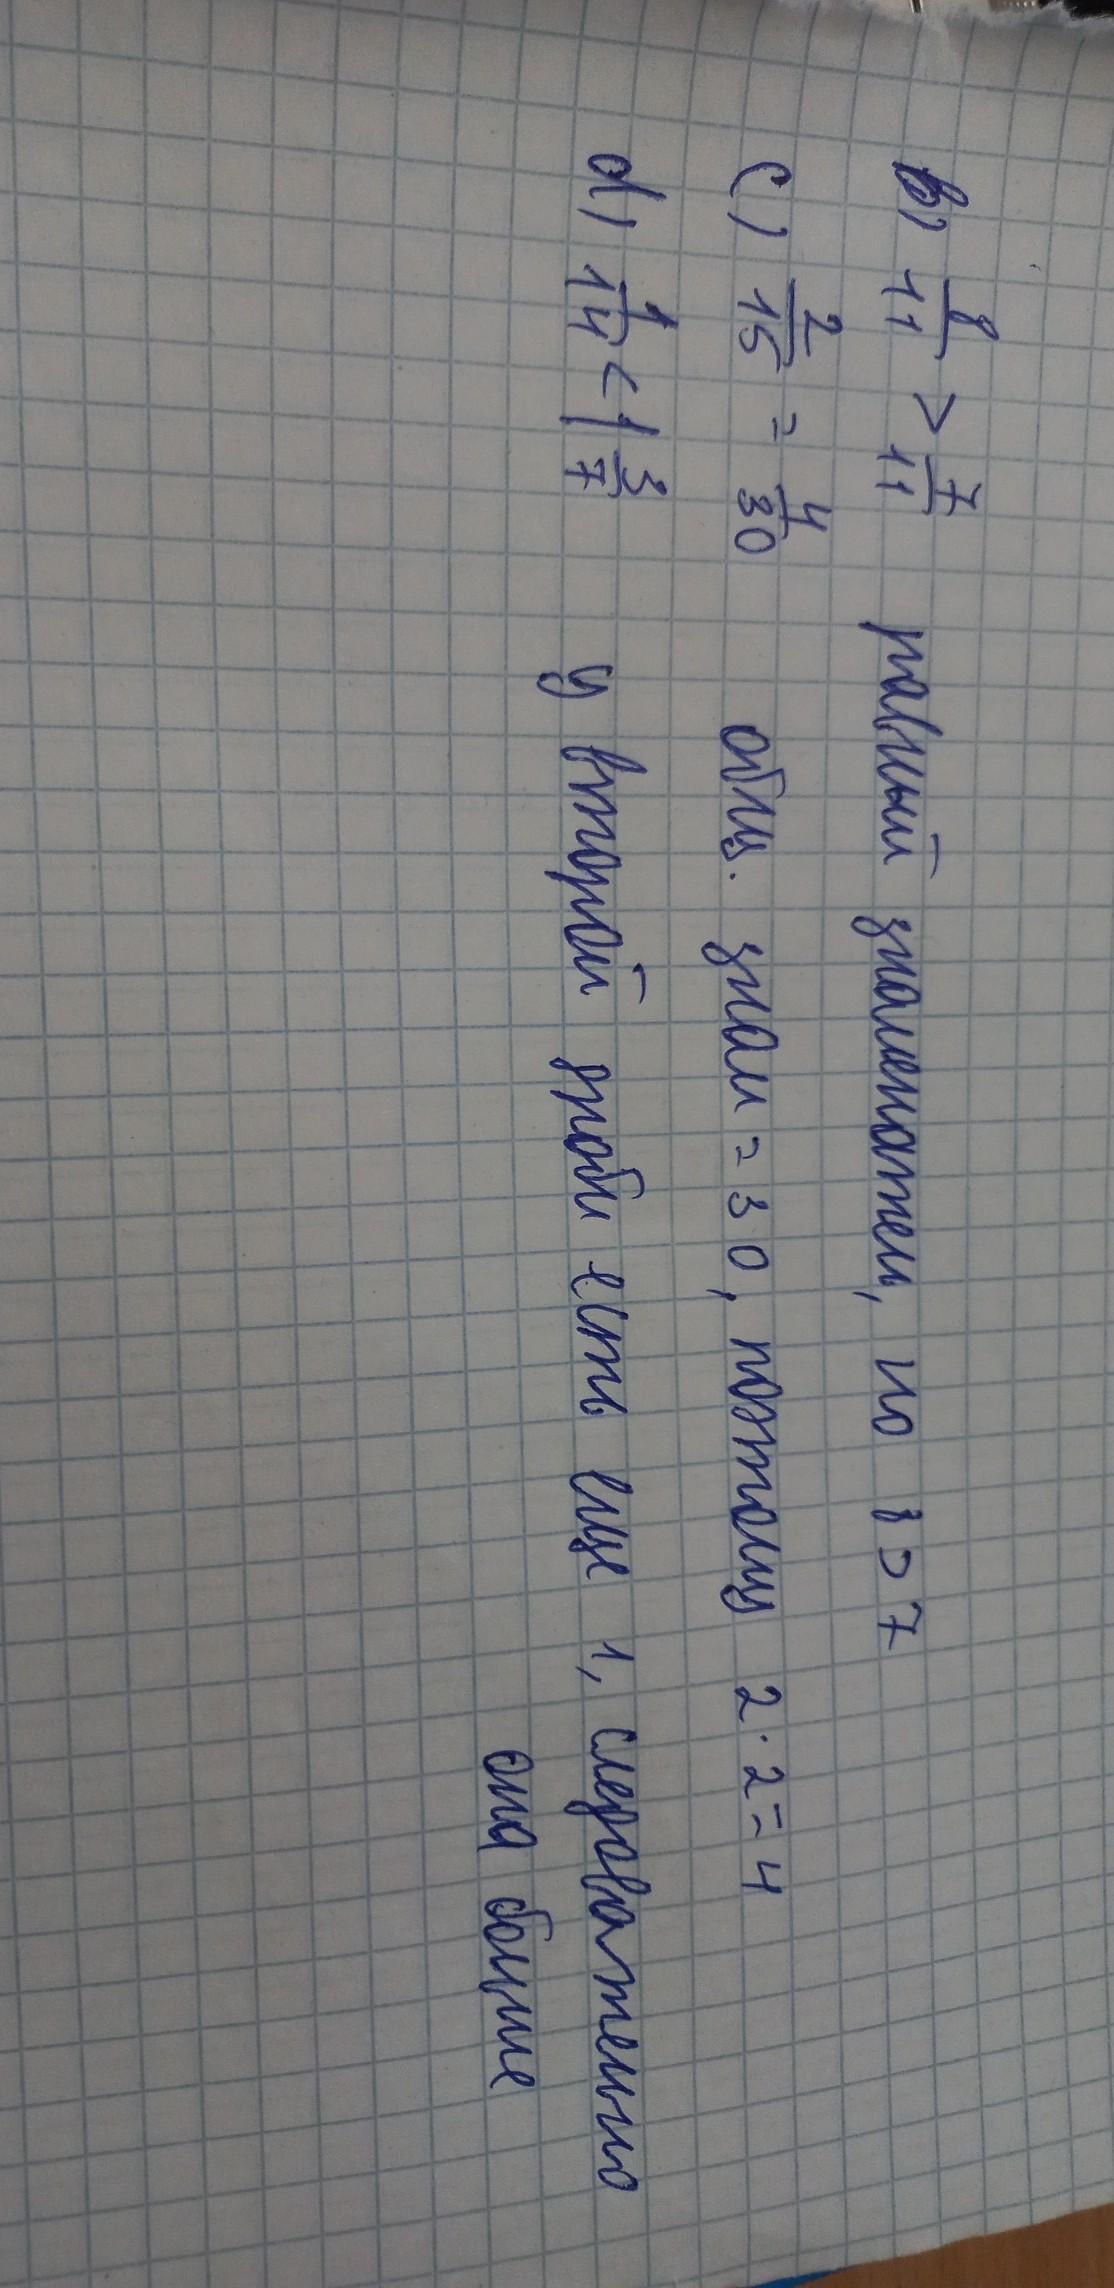 b) 8/11 > 7/11 равный знаменатель, но 8 > 7
c) 2/15 = 4/30 общ. знам = 30, поэтому 2 · 2 = 4
d) 1/14 < 1 3/7 у второй дроби есть еще 1, следовательно
она больше